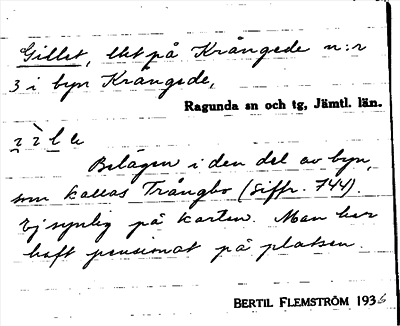 Gillet, lht på Krångede n:r
3 i byn Krångede,
Ragunda sn och tg, Jämtl. län.
Belägen i den del av byn,
som kallas Trångbo (Siffr. 744).
Ej synlig på kartan. Man har
haft pensionat på platsen.
BERTIL FLEMSTRÖM 1936